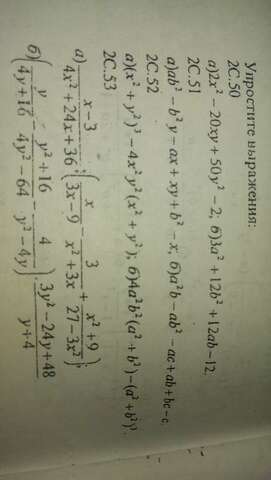 Упростите выражения:
2C.50
a) 2x² − 20xy + 50y² − 2; б) 3a² + 12b² + 12ab − 12.
2C.51
a) ab² − b²y − ax + xy + b² − x; б) a²b − ab² − ac + ab + bc − c.
2C.52
a) (x² + y²)³ − 4x²y²(x² + y²); б) 4a²b²(a² + b²) − (a² + b²)³.
2C.53
a) (x − 3)/(4x² + 24x + 36) : (x/(3x − 9) − 3/(x² + 3x) + (x² + 9)/(27 − 3x²));
б) (y/(4y + 16) − (y² + 16)/(4y² − 64) − 4/(y² − 4y)) · (3y² − 24y + 48)/(y + 4)